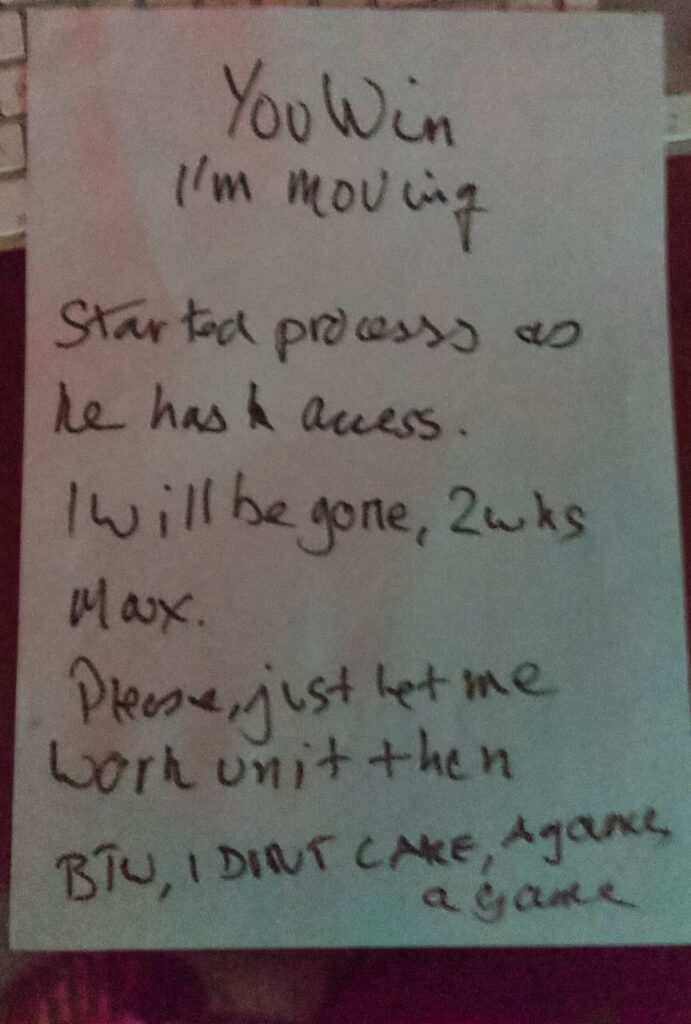 You Win
I'm moving
Started process as
he has access.
I will be gone, 2wks
Max.
Please, just let me
work unit then
BTW, I DINT CARE, A game,
a game